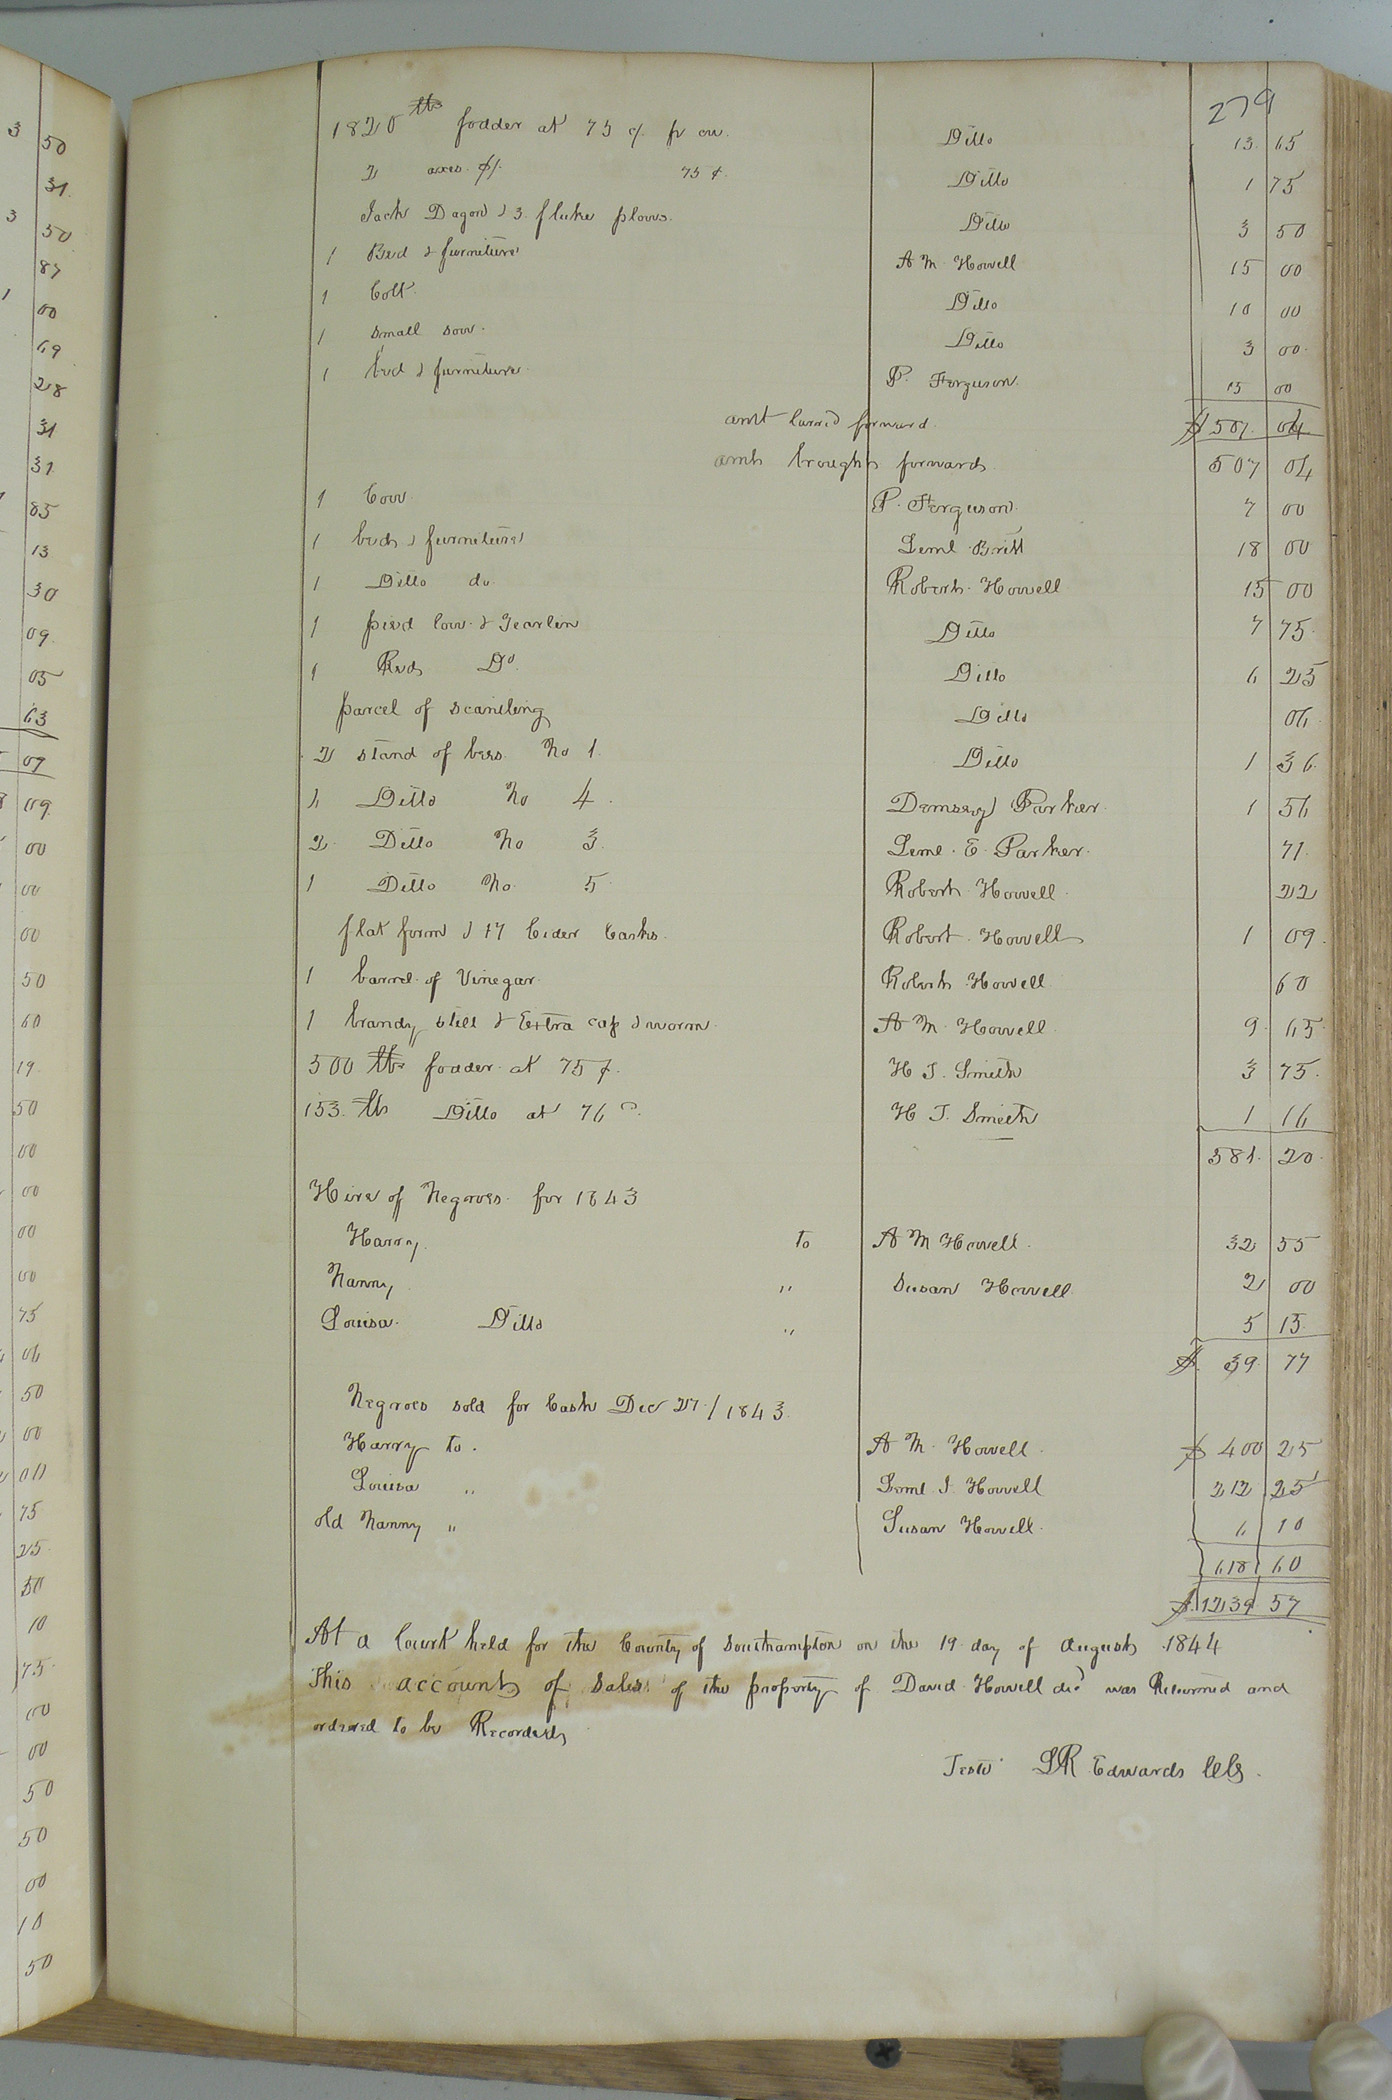 3 50
31
3 50
87
1 00
69
28
31
31
85
13
30
09
05
63
09
09
00
00
00
50
60
19
50
00
00
00
00
75
06
50
00
00
75
25
50
10
75
00
00
50
50
00
10
50
279
1820 lbs fodder at 75 c/ pr cw. Ditto 13 65
2 axes $1. 75 ¢ Ditto 1 75
Jack Dagon & 3 fluke plows. Ditto 3 50
1 Bed & furniture A M Howell 15 00
1 Colt. Ditto 10 00
1 small sow. Ditto 3 00
1 bed & furniture P. Ferguson. 15 00
amt carrid forward. $507. 04
amt brought forward 507 04
1 Cow P. Ferguson. 7 00
1 bed & furniture Leml Britt 18 00
1 Ditto do Robert Howell 15 00
1 pied cow & Yearlin Ditto 7 75
1 Red Do Ditto 6 25
parcel of scantling Ditto 06
2 stand of bees No 1 Ditto 1 36
Ditto No 4. Demsey Parker 1 56
2 Ditto No 3. Leml. E. Parker. 71
1 Ditto No. 5 Robert Howell. 22
flat form & 17 Cider Casks. Robert Howell 1 09
1 barrel of Vinegar. Robert Howell 60
1 brandy still & Extra cap & worm A M Howell 9 65
500 lbs fodder at 75 ¢. H J. Smith 3 75
153 lbs Ditto at 76 c. H J. Smith 1 16
581. 20
Hire of Negroes for 1843
Harry to A M Howell. 32 55
Nanny " Susan Howell 2 00
Louisa. Ditto " 5 13
$ 39 77
Negroes sold for Cash Dec 27/1843
Harry to. A M. Howell. $ 400 25
Louisa " Leml J. Howell 212 25
old Nanny " Susan Howell. 6 10
618 60
$1239 57
At a Court held for the County of Southampton on the 19 day of August 1844
This account of sales of the property of David Howell decd was Returned and
ordered to be Recorded
Teste LR Edwards Clk.